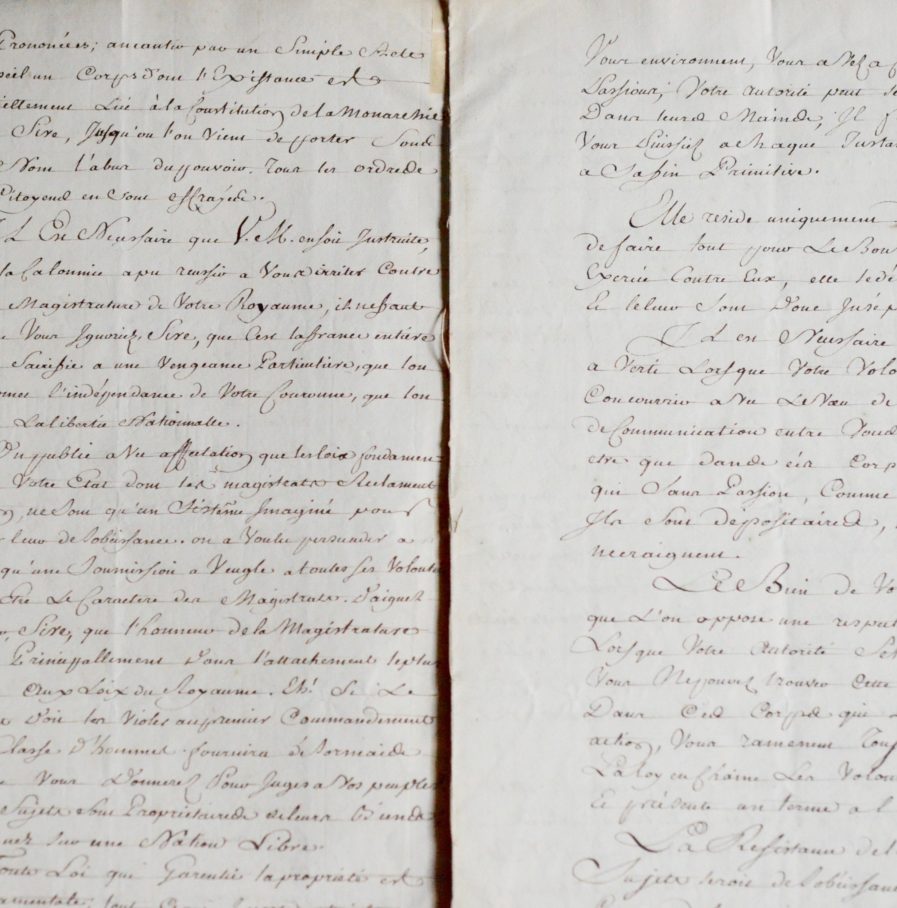 Prononcées; aneantir par un Simple Acte
un Corps dont l'Existance est
ellement Lié à la Constitution de la Monarchie
Sire, Jusqu'ou l'on Vient de porter Sous
Nom l'abus du pouvoir. Tous les ordres de
Citoyens en sont effrayés.
Il Est Necessaire que V. M. en soit Instruite,
la Calomnie a pu reussir a Vous irriter Contre
Magistrature de Votre Royaume, il ne faut
Vous Ignoriez, Sire, que C'est la france entiere
Sacrifie a une Vengeance Particuliere, que l'on
l'indépendance de Votre Couronne, que l'on
La liberté Nationnalle.
On publie avec affectation que les loix fondamen-
Votre Etat dont les magistrats Reclament
ne Sont qu'un Sisteme Imaginé pour
leur desobeissance. on a Voulu persuader a
qu'une Soumission aveugle a toutes ses Volontés
Etre Le Caractere des Magistrats. Daignez
Sire, que l'honneur de la Magistrature
Principallement dans l'attachement le plus
aux Loix du Royaume. Eh! Si Le
doit les Violer au premier Commandement
Classe d'hommes fournira désormais
Vous Donnerez Pour Juges a Vos peuples
Sujets sont Propriétaires de leurs biens
sur une Nation Libre.
Toute Loi qui Garentie la propriété est
amentale; tout
Vous environnent, Vous avez a
Passions; Votre autorité peut
Dans leurs Mains; Il f
Vous Puissiez a chaque Insta
a Sa fin Primitive.
Elle reside uniquement
de faire tout pour Le Bon
Exercée Contre Eux, elle se dé
Et le leur Sont donc Insép
Il en Necessaire
averti Lorsque Votre Volo
Concourrir avec Le Vœu de
de Communication entre Vous
etre que dans ces Corps
qui Sans Passion, Comme
Ils Sont dépositaires,
ne craignent.
Le Bien de Vo
que l'on oppose une respect
Lorsque Votre Autorité Se
Vous Ne pouvez trouver Cette
Dans Ces Corps qui
action, Vous ramenent Touj
La loy enchaine Les Volon
Et présente un terme a l
La Resistance de l
Sujets seroit desobéissan